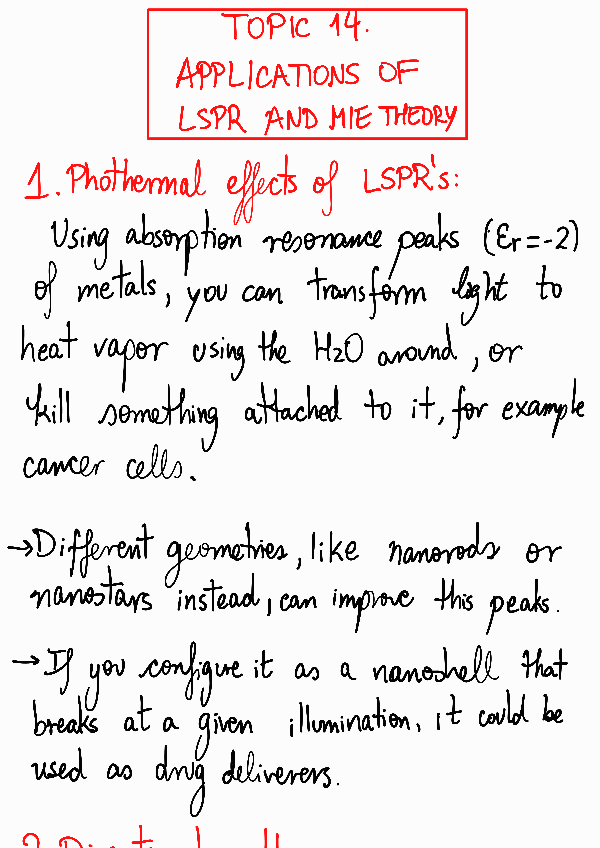 TOPIC 14.
APPLICATIONS OF
LSPR AND MIE THEORY
1. Phothermal effects of LSPR's:
Using absorption resonance peaks (εr=-2)
of metals, you can transform light to
heat vapor using the H2O around, or
kill something attached to it, for example
cancer cells.
→Different geometries, like nanorods or
nanostars instead, can improve this peaks.
→If you configure it as a nanoshell that
breaks at a given illumination, it could be
used as drug deliverers.